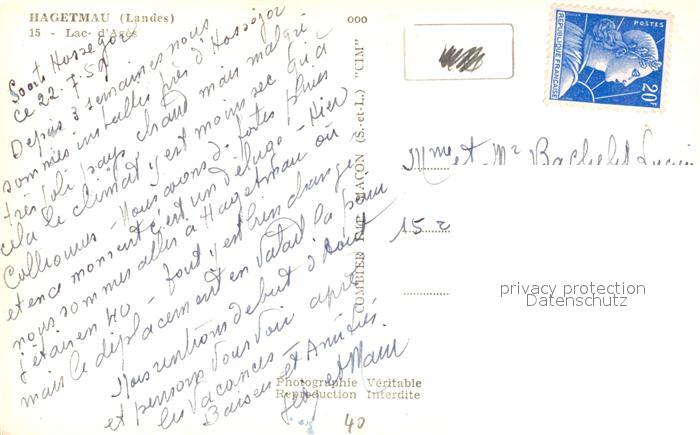 HAGETMAU (Landes)
15 - Lac d'Agès
Soorts Hossegor
ce 22.7.59
Depuis 3 semaines nous
sommes installés près d'Hossegor
très joli pays chaud mais malgré
cela le climat y est moins sec qu'à
Nous avons de fortes pluies
et en ce moment c'est un déluge - Hier
nous sommes allés à Hagetmau où
j'étais en 40 - tout y est bien changé
mais le déplacement en valait la peine
Nous rentrons début d'Août
et pensons vous voir après
les vacances -
Baisers et Amitiés.
et
40
ooo
COMBIER IMP. MACON (S.-et-L.) "CIM"
Photographie Véritable
Reproduction Interdite
POSTES
REPUBLIQUE FRANÇAISE
20F
Mme et Mr Bachelet Lucien
privacy protection
Datenschutz